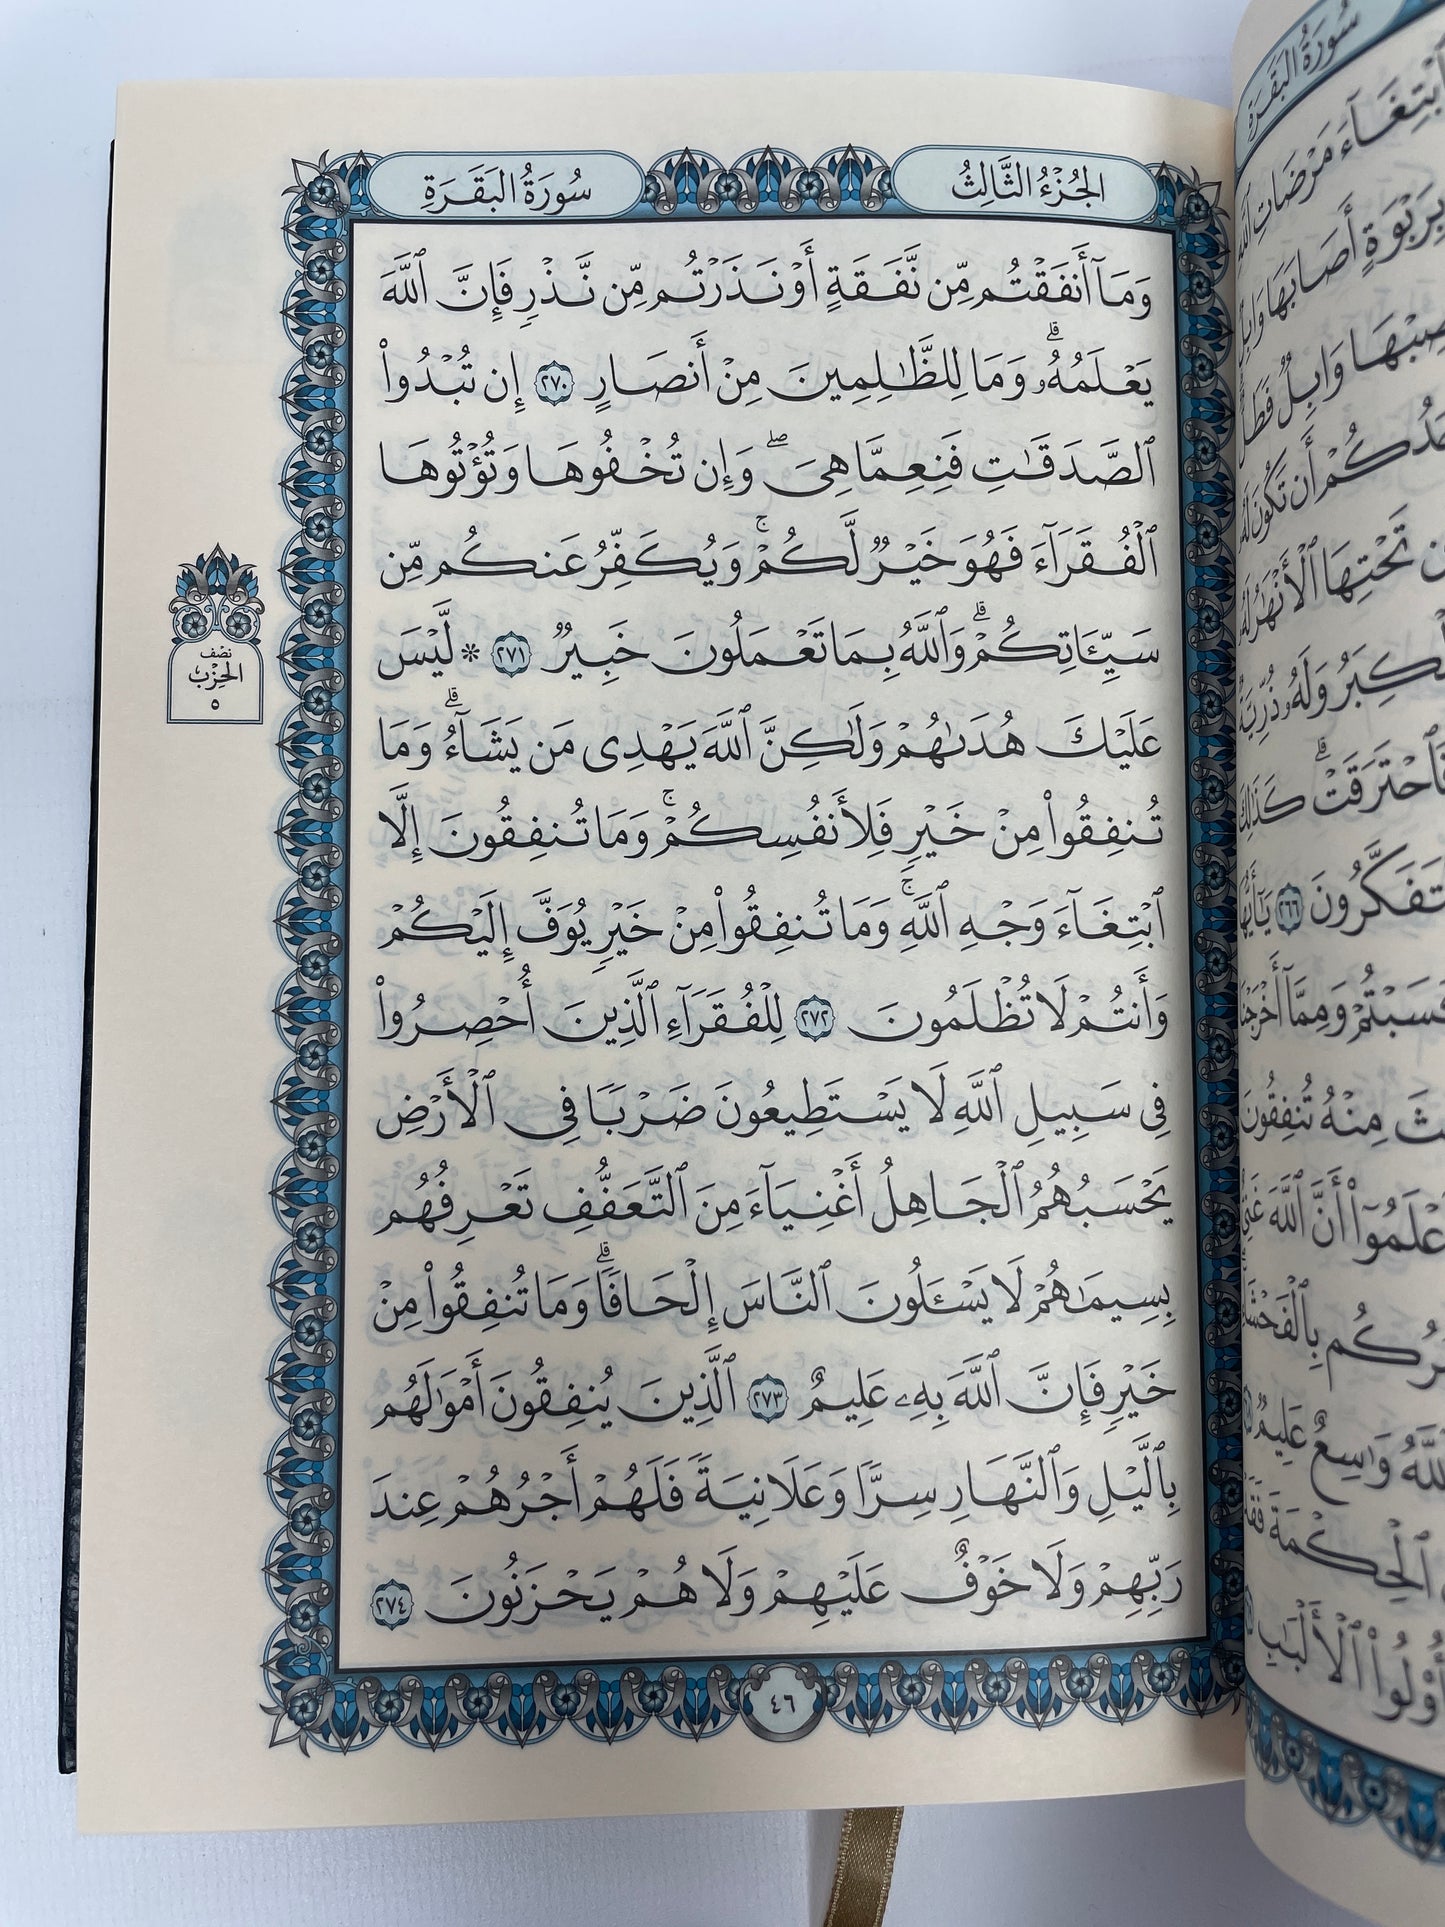 الجُزْءُ الثَّالِثُ
سُورَةُ البَقَرَةِ
وَمَآ أَنفَقْتُم مِّن نَّفَقَةٍ أَوْ نَذَرْتُم مِّن نَّذْرٍ فَإِنَّ ٱللَّهَ
يَعْلَمُهُۥۗ وَمَا لِلظَّٰلِمِينَ مِنْ أَنصَارٍ ٢٧٠ إِن تُبْدُوا۟
ٱلصَّدَقَٰتِ فَنِعِمَّا هِىَۖ وَإِن تُخْفُوهَا وَتُؤْتُوهَا
ٱلْفُقَرَآءَ فَهُوَ خَيْرٌ لَّكُمْۚ وَيُكَفِّرُ عَنكُم مِّن
سَيِّـَٔاتِكُمْۗ وَٱللَّهُ بِمَا تَعْمَلُونَ خَبِيرٌ ٢٧١ * لَّيْسَ
عَلَيْكَ هُدَىٰهُمْ وَلَٰكِنَّ ٱللَّهَ يَهْدِى مَن يَشَآءُۗ وَمَا
تُنفِقُوا۟ مِنْ خَيْرٍ فَلِأَنفُسِكُمْۚ وَمَا تُنفِقُونَ إِلَّا
ٱبْتِغَآءَ وَجْهِ ٱللَّهِۚ وَمَا تُنفِقُوا۟ مِنْ خَيْرٍ يُوَفَّ إِلَيْكُمْ
وَأَنتُمْ لَا تُظْلَمُونَ ٢٧٢ لِلْفُقَرَآءِ ٱلَّذِينَ أُحْصِرُوا۟
فِى سَبِيلِ ٱللَّهِ لَا يَسْتَطِيعُونَ ضَرْبًا فِى ٱلْأَرْضِ
يَحْسَبُهُمُ ٱلْجَاهِلُ أَغْنِيَآءَ مِنَ ٱلتَّعَفُّفِ تَعْرِفُهُم
بِسِيمَٰهُمْ لَا يَسْـَٔلُونَ ٱلنَّاسَ إِلْحَافًاۗ وَمَا تُنفِقُوا۟ مِنْ
خَيْرٍ فَإِنَّ ٱللَّهَ بِهِۦ عَلِيمٌ ٢٧٣ ٱلَّذِينَ يُنفِقُونَ أَمْوَٰلَهُم
بِٱلَّيْلِ وَٱلنَّهَارِ سِرًّا وَعَلَانِيَةً فَلَهُمْ أَجْرُهُمْ عِندَ
رَبِّهِمْ وَلَا خَوْفٌ عَلَيْهِمْ وَلَا هُمْ يَحْزَنُونَ ٢٧٤
٤٦
نصف
الحِزْب
٥
سُورَةُ البَقَرَةِ
ٱبْتِغَآءَ مَرْضَاتِ ٱللَّهِ
بِرَبْوَةٍ أَصَابَهَا وَابِلٌ
وَابِلٌ فَطَلٌّ
أَن تَكُونَ لَهُۥ
تَحْتِهَا ٱلْأَنْهَٰرُ لَهُۥ
ٱلْكِبَرُ وَلَهُۥ ذُرِّيَّةٌ
فَٱحْتَرَقَتْۗ كَذَٰلِكَ
تَتَفَكَّرُونَ ٢٦٦ يَٰٓأَيُّهَا
كَسَبْتُمْ وَمِمَّآ أَخْرَجْنَا
مِنْهُ تُنفِقُونَ
أَنَّ ٱللَّهَ غَنِىٌّ
بِٱلْفَحْشَآءِ
وَٰسِعٌ عَلِيمٌ
ٱلْحِكْمَةَ فَقَدْ
أُو۟لُوا۟ ٱلْأَلْبَٰبِ